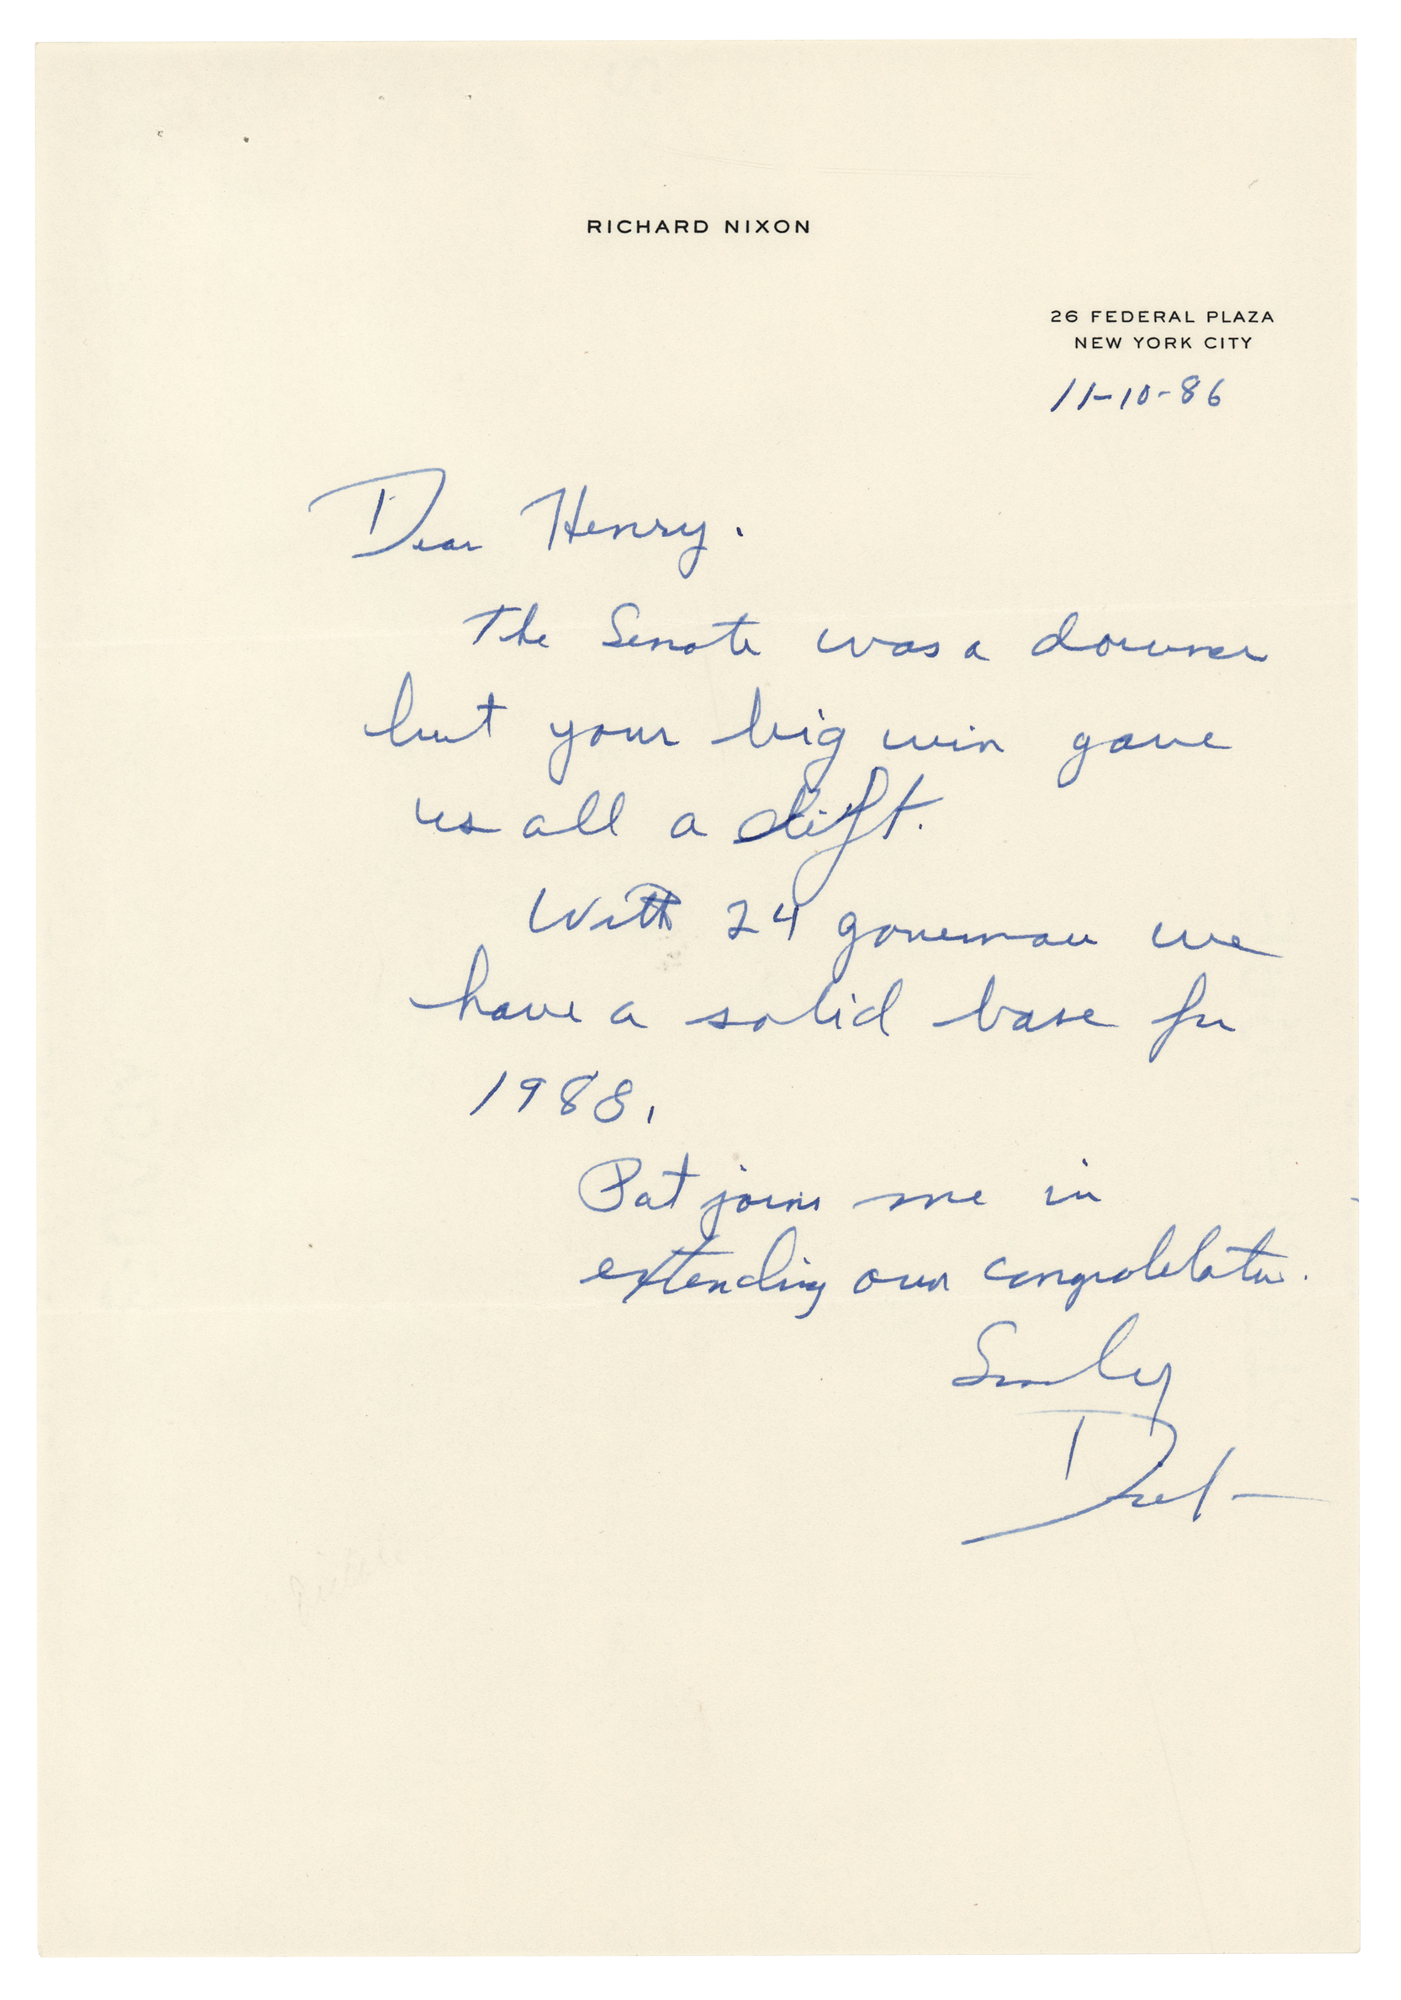 RICHARD NIXON
26 FEDERAL PLAZA
NEW YORK CITY
11-10-86
Dear Henry.
The Senate was a downer
but your big win gave
us all a lift.
With 24 governors we
have a solid base for
1988.
Pat joins me in
extending our congratulations.
Sincerely
Dick